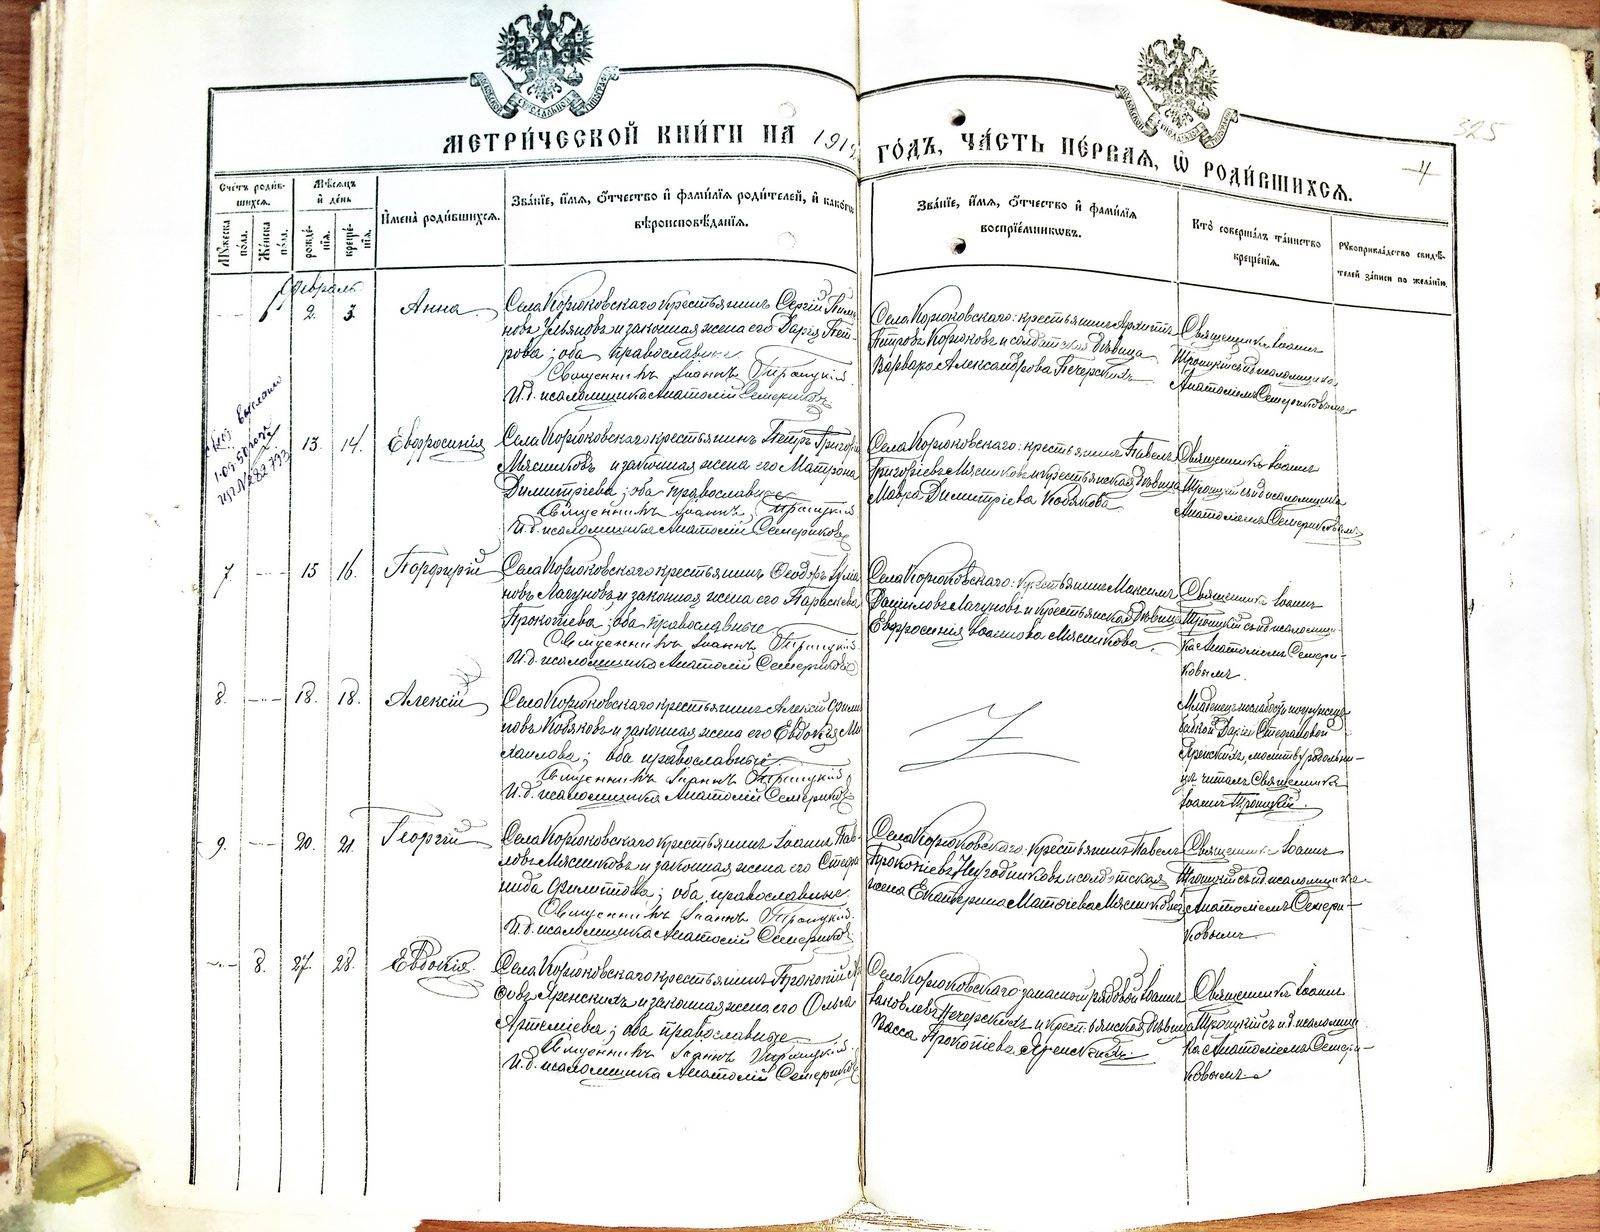 МЕТРИЧЕСКОЙ КНИГИ НА 191
ГОДЪ, ЧАСТЬ ПЕРВАЯ, Ѡ РОДИВШИХСЯ.
325
4
Счетъ родив-
шихся.
Мужеска
пола.
Женска
пола.
Мѣсяцъ
и день
рожде-
нія.
креще-
нія.
Имена родившихся.
Званіе, имя, отчество и фамилія родителей, и какого
вѣроисповѣданія.
Званіе, имя, отчество и фамилія
воспріемниковъ.
Кто совершалъ таинство
крещенія.
Рукоприкладство свидѣ-
телей записи по желанію.
Февраль
2. 3.
Анна
Села Корюковскаго крестьянинъ Сергій
Ульяновъ и законная жена его Дарія Пет-
рова; оба православные
Священникъ Іоаннъ Троицкій.
И.д. псаломщика Анатолій Семериковъ
Села Корюковскаго: крестьянинъ Архиппъ
Петровъ Корюковъ и солдатская дѣвица
Варвара Александрова Печерскихъ.
Священникъ Іоаннъ
Троицкій съ и.д. псаломщика
Анатоліемъ Семериковымъ
13. 14.
Евфросинія
Села Корюковскаго крестьянинъ Петръ Григорі
Мясниковъ и законная жена его Матрона
Димитріева; оба православные
Священникъ Іоаннъ Троицкій
И.д. псаломщика Анатолій Семериковъ
Села Корюковскаго: крестьянинъ Павелъ
Григоріевъ Мясниковъ и крестьянская дѣвица
Мавра Димитріева Кобякова.
Священникъ Іоаннъ
Троицкій съ и.д. псаломщика
Анатоліемъ Семериковымъ
7. 15 16.
Порфирій
Села Корюковскаго крестьянинъ Ѳеодоръ
новъ Лагуновъ и законная жена его Параскева
Прокопіева; оба православные
Священникъ Іоаннъ Троицкій
И.д. псаломщика Анатолій Семериковъ
Села Корюковскаго: крестьянинъ Максимъ
Даниловъ Лагуновъ и крестьянская дѣвица
Евфросинія Іоаннова Мясникова.
Священникъ Іоаннъ
Троицкій съ и.д. псаломщи-
ка Анатоліемъ Семери-
ковымъ.
8. 18. 18.
Алексій
Села Корюковскаго крестьянинъ Алексій Филип
повъ Кобяковъ и законная жена его Евдокія Ми
хаилова; оба православные
Священникъ Іоаннъ Троицкій
И.д. псаломщика Анатолій Семериковъ
Z
Младенецъ по слабости погруженъ
бабкой Даріей Стефановой
Яренскихъ, молитву родильни-
цѣ читалъ Священникъ
Іоаннъ Троицкій.
9. 20. 21.
Георгій
Села Корюковскаго крестьянинъ Іоаннъ Пав-
ловъ Мясниковъ и законная жена его Стефа
нида Филиппова; оба православные
Священникъ Іоаннъ Троицкій.
И.д. псаломщика Анатолій Семериковъ
Села Корюковскаго: крестьянинъ Павелъ
Прокопіевъ и солдатская
жена Екатерина Матѳіева Мясникова
Священникъ Іоаннъ
Троицкій съ и.д. псаломщика
Анатоліемъ Семери-
ковымъ
8. 27. 28.
Евдокія
Села Корюковскаго крестьянинъ Прокопій
Яренскихъ и законная жена его Ольга
Артеміева; оба православные
Священникъ Іоаннъ Троицкій.
И.д. псаломщика Анатолій Семериковъ
Села Корюковскаго запасной рядовой Іоаннъ
Іаковлевъ Печерскихъ и крестьянская дѣвица
Васса Прокопіева Яренскихъ.
Священникъ Іоаннъ
Троицкій съ и.д. псаломщи
ка Анатоліемъ Семери-
ковымъ